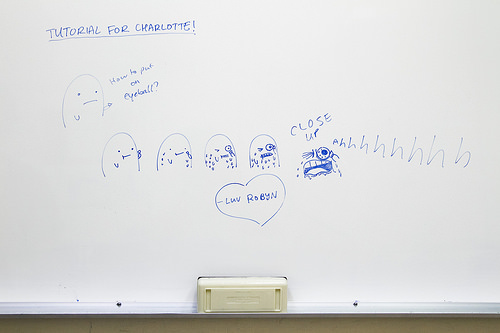 TUTORIAL FOR CHARLOTTE!
HOW to put
on
eyeball?
CLOSE
UP
Ahhhhhhhhh
- LUV ROBYN